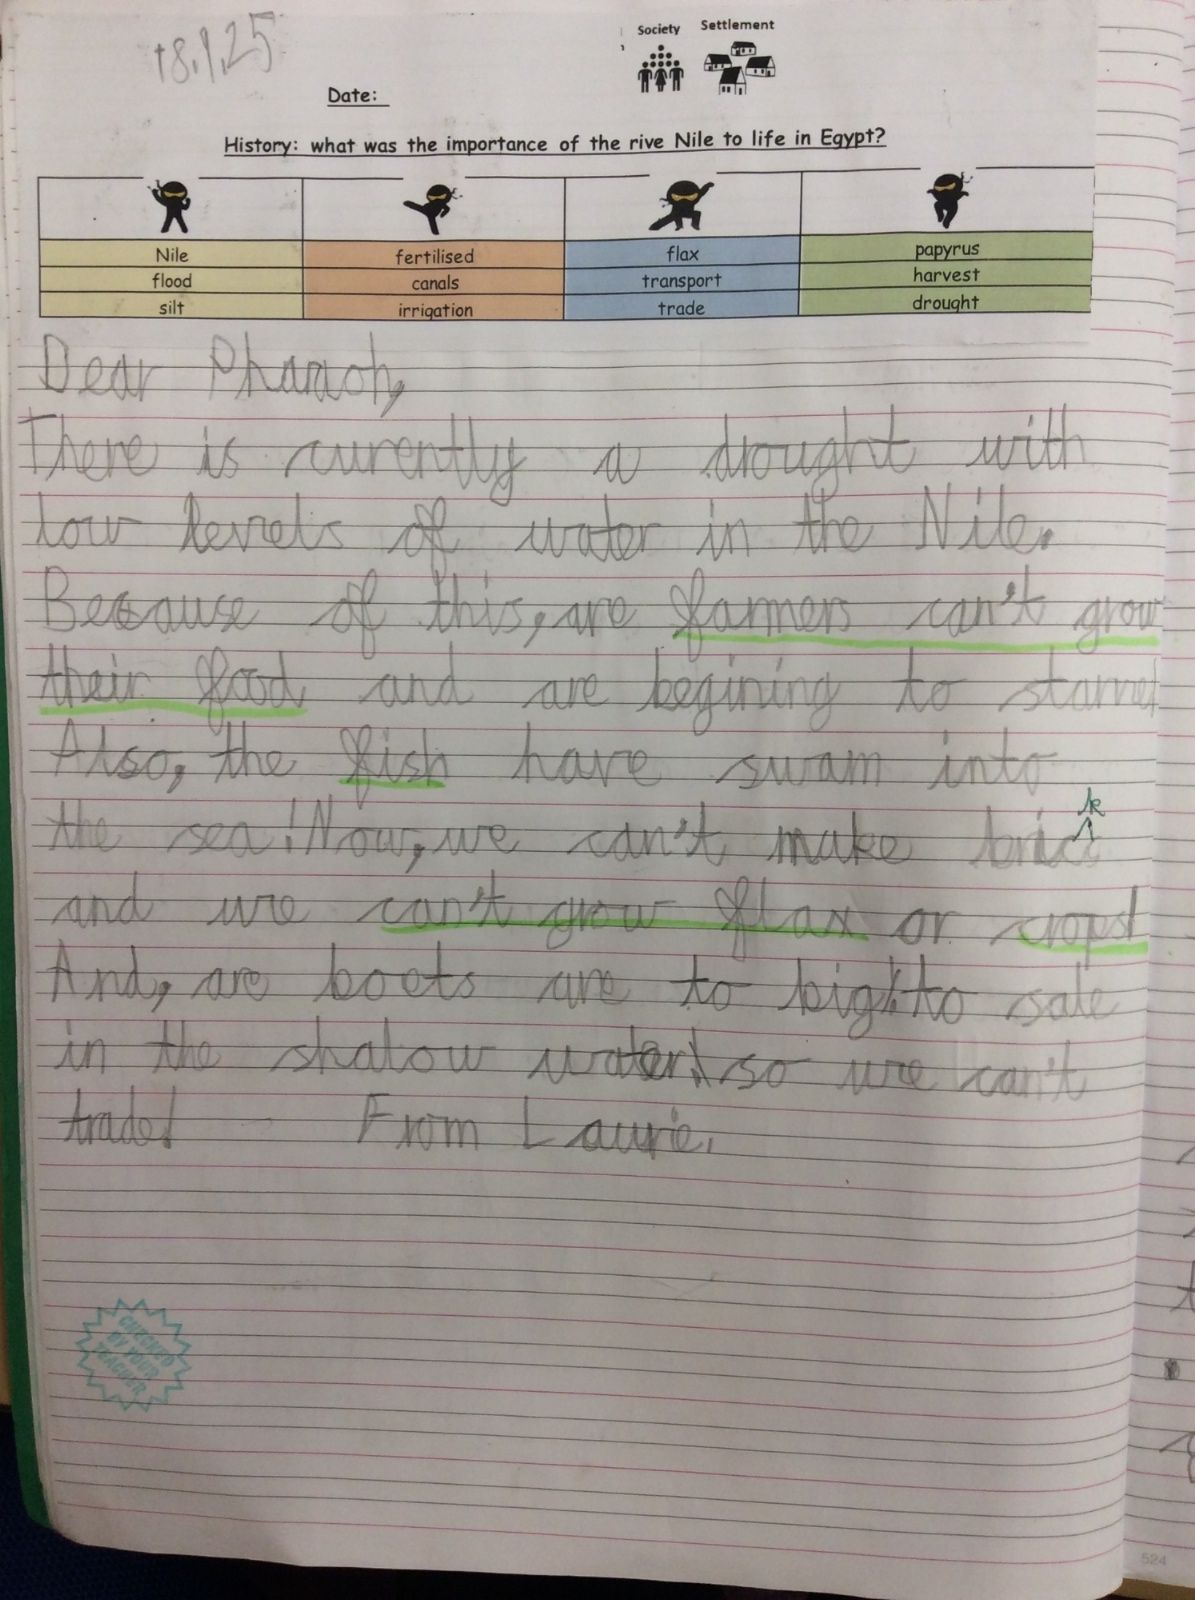 18.1.25
Society Settlement
Date:
History: what was the importance of the rive Nile to life in Egypt?
Nile fertilised flax papyrus
flood canals transport harvest
silt irrigation trade drought
Dear Pharaoh,
There is curently a drought with
low levels of water in the Nile.
Because of this, are farmers can't grow
their food and are begining to starve!
Also, the fish have swam into
the sea! Now, we can't make brick
and we can't grow flax or crops!
And, are boets are to big to sale
in the shalow water! so we can't
trade! From Laurie.
CHECKED
BY YOUR
TEACHER
524